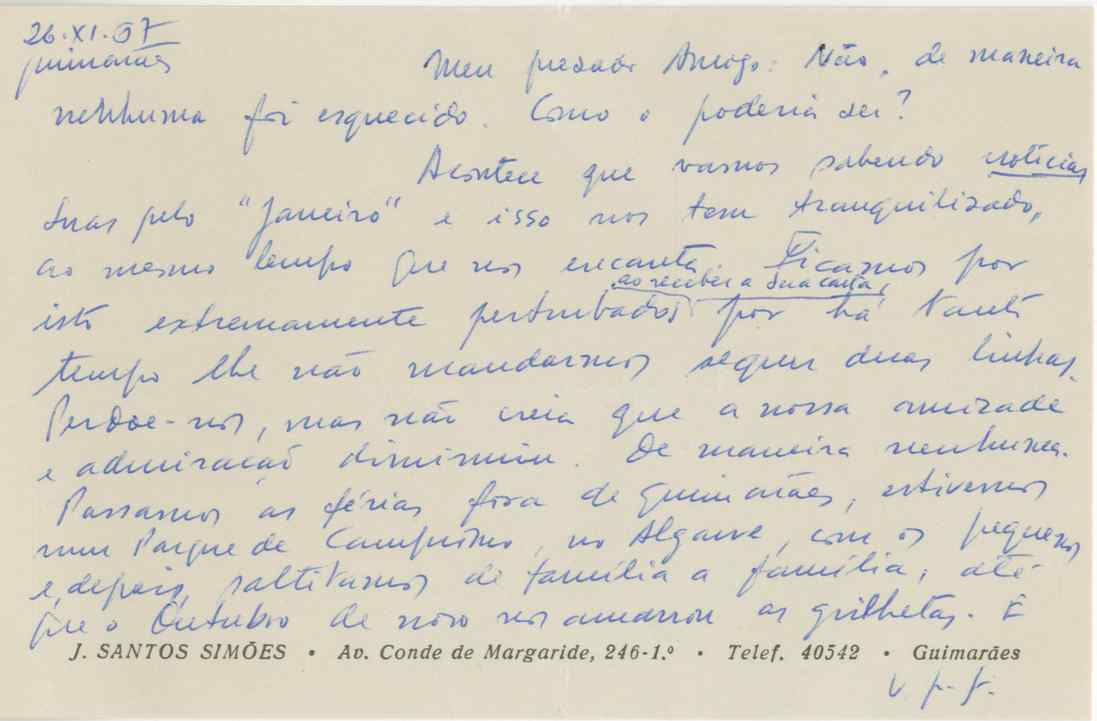 26.XI.67
Guimarães
Meu prezado Amigo: Não, de maneira
nenhuma foi esquecido. Como o poderia ser?
Acontece que vamos sabendo notícias
suas pelo "Janeiro" e isso nos tem tranquilizado,
ao mesmo tempo que nos encanta. Ficamos por
ao receber a sua carta,
isto extremamente perturbados por há tanto
tempo lhe não mandarmos sequer duas linhas.
Perdoe-nos, mas não creia que a nossa amizade
e admiração diminuiu. De maneira nenhuma.
Passamos as férias fora de Guimarães, estivemos
num Parque de Campismo, no Algarve, com os pequenos
e, depois, saltitamos de família a família, até
que o Outubro de novo nos amarrou as grilhetas. E
J. SANTOS SIMÕES • Av. Conde de Margaride, 246-1.º • Telef. 40542 • Guimarães
V. p. f.